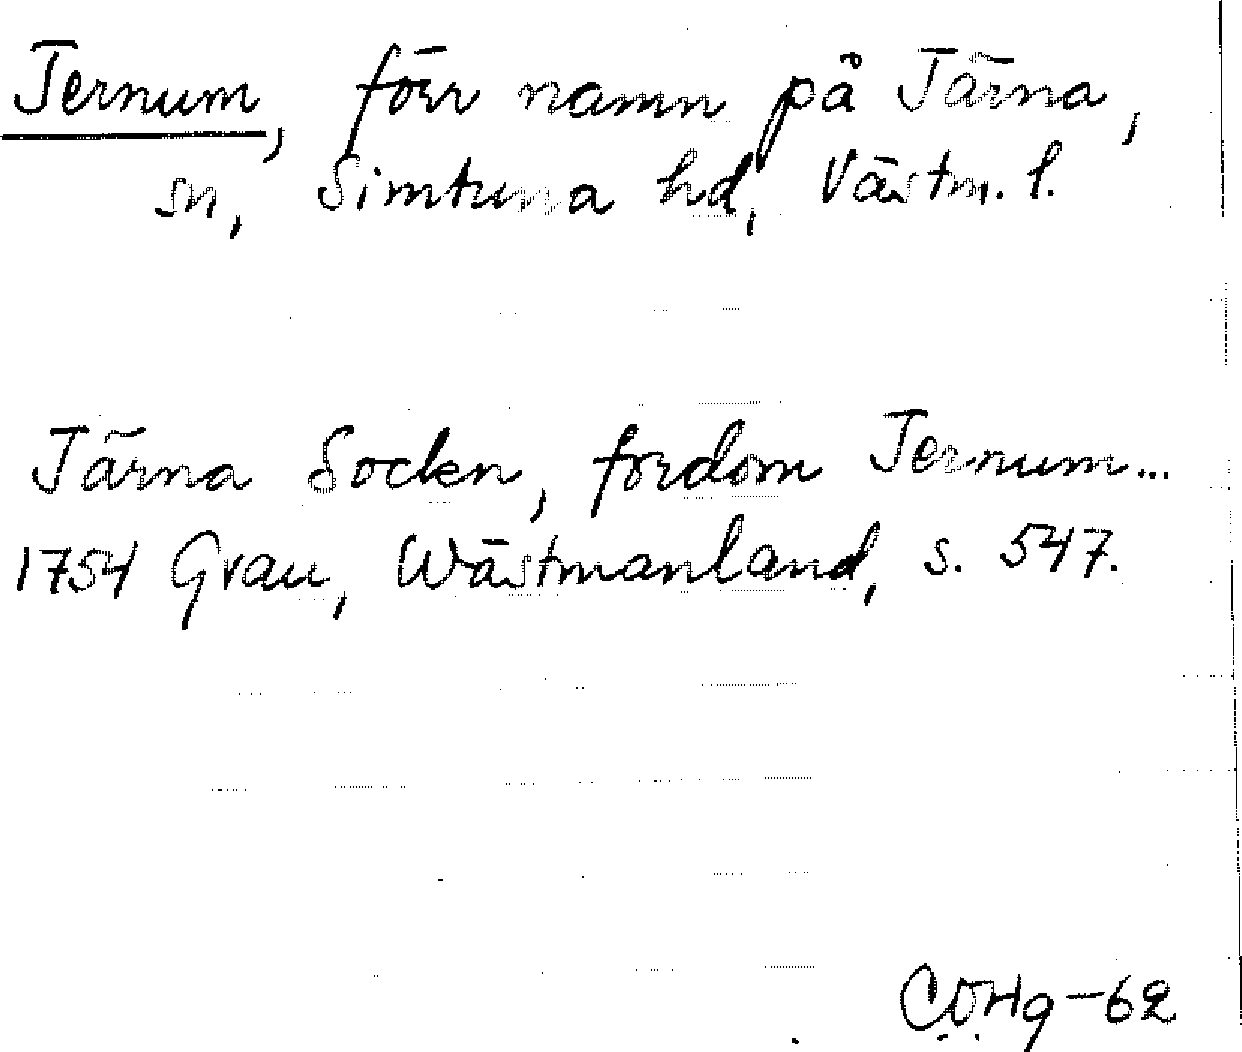 Ternum, förr namn på Tärna,
sn, Simtuna hd, Västm. l.
Tärna Sockn, fordom Ternum...
1754 Grau, Wästmanland, s. 547.
COHg-62